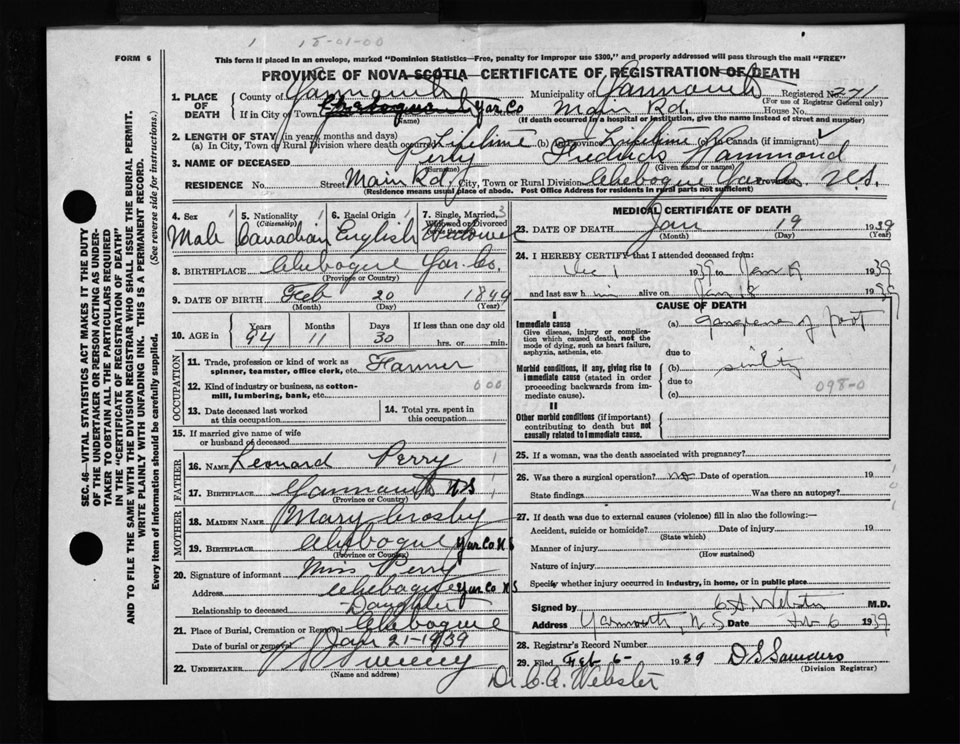 1 15-01-00
FORM 6
This form if placed in an envelope, marked "Dominion Statistics—Free, penalty for improper use $300," and properly addressed will pass through the mail "FREE"
PROVINCE OF NOVA SCOTIA—CERTIFICATE OF REGISTRATION OF DEATH
1. PLACE OF DEATH County of Yarmouth Municipality of Yarmouth Registered No. 271
(For use of Registrar General only)
If in City or Town Chebogue Yar.Co Street Main Rd. House No.
(Name) (If death occurred in a hospital or institution, give the name instead of street and number)
2. LENGTH OF STAY (in years, months and days)
(a) In City, Town or Rural Division where death occurred Lifetime (b) In Province Lifetime (c) In Canada (if immigrant)
3. NAME OF DECEASED Perry Fredrick Hammond
(Surname) (Given name or names)
RESIDENCE No. Street Main Rd. City, Town or Rural Division Chebogue Yar. Co. Province N.S.
(Residence means usual place of abode. Post Office Address for rural parts not sufficient)
4. Sex Male
5. Nationality (Citizenship) Canadian
6. Racial Origin English
7. Single, Married, Widowed or Divorced Widower
8. BIRTHPLACE Chebogue Yar. Co.
(Province or Country)
9. DATE OF BIRTH Feb 20 1844
(Month) (Day) (Year)
10. AGE in Years 94 Months 11 Days 30 If less than one day old hrs. or min.
OCCUPATION
11. Trade, profession or kind of work as spinner, teamster, office clerk, etc. Farmer
12. Kind of industry or business, as cotton-mill, lumbering, bank, etc. 000
13. Date deceased last worked at this occupation
14. Total yrs. spent in this occupation
15. If married give name of wife or husband of deceased
FATHER
16. NAME Leonard Perry
17. BIRTHPLACE Yarmouth N.S
(Province or Country)
MOTHER
18. MAIDEN NAME Mary Crosby
19. BIRTHPLACE Chebogue Yar.Co N S
(Province or Country)
20. Signature of informant Miss Perry
Address Chebogue Yar.Co N S
Relationship to deceased Daughter
21. Place of Burial, Cremation or Removal Chebogue
Date of burial or removal Jan 21-1939
22. UNDERTAKER Sweeny
(Name and address)
MEDICAL CERTIFICATE OF DEATH
23. DATE OF DEATH Jan 19 1939
(Month) (Day) (Year)
24. I HEREBY CERTIFY that I attended deceased from:
Dec 1 1939 to Jan 19 1939
and last saw him alive on Jan 18 1939
CAUSE OF DEATH
I
Immediate cause
Give disease, injury or complication which caused death, not the mode of dying, such as heart failure, asphyxia, asthenia, etc.
(a) Gangrene of foot
due to
Morbid conditions, if any, giving rise to immediate cause (stated in order proceeding backwards from immediate cause).
(b) senility
due to 098-0
(c)
II
Other morbid conditions (if important) contributing to death but not causally related to immediate cause.
25. If a woman, was the death associated with pregnancy?
26. Was there a surgical operation? no Date of operation 19
State findings Was there an autopsy?
27. If death was due to external causes (violence) fill in also the following:—
Accident, suicide or homicide? Date of injury 19
(State which)
Manner of injury
(How sustained)
Nature of injury
Specify whether injury occurred in industry, in home, or in public place
Signed by C.A. Webster M.D.
Address Yarmouth, N S Date Feb 6 1939
28. Registrar's Record Number
29. Filed Feb 6- 1939 D S Saunders
(Division Registrar)
Dr. C. A. Webster
SEC. 46—VITAL STATISTICS ACT MAKES IT THE DUTY
OF THE UNDERTAKER OR PERSON ACTING AS UNDER-
TAKER TO OBTAIN ALL THE PARTICULARS REQUIRED
IN THE "CERTIFICATE OF REGISTRATION OF DEATH"
AND TO FILE THE SAME WITH THE DIVISION REGISTRAR WHO SHALL ISSUE THE BURIAL PERMIT.
WRITE PLAINLY WITH UNFADING INK. THIS IS A PERMANENT RECORD.
Every item of information should be carefully supplied. (See reverse side for instructions.)